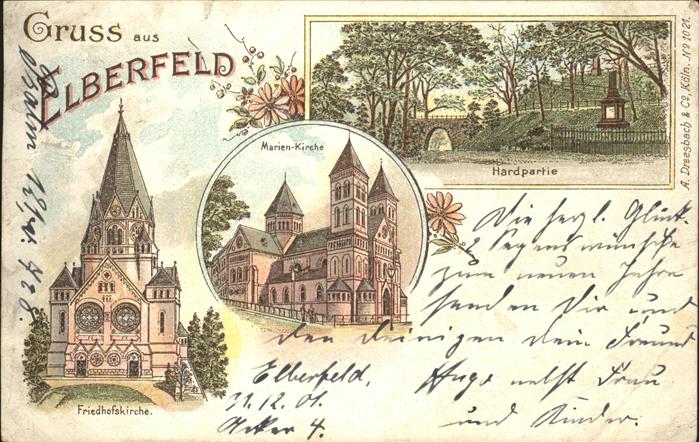 Gruss aus
ELBERFELD
A. Dreesbach & Co, Köln. No 1021
Hardpartie
Marien-Kirche
Friedhofskirche.
Die herzl. Glück
& Segenswünsche
zum neuen Jahre
senden Dir und
den Deinigen dein Freund
Hugo nebst Frau
und Kinder.
Elberfeld,
31.12.01.
Acker 4.
Psalm